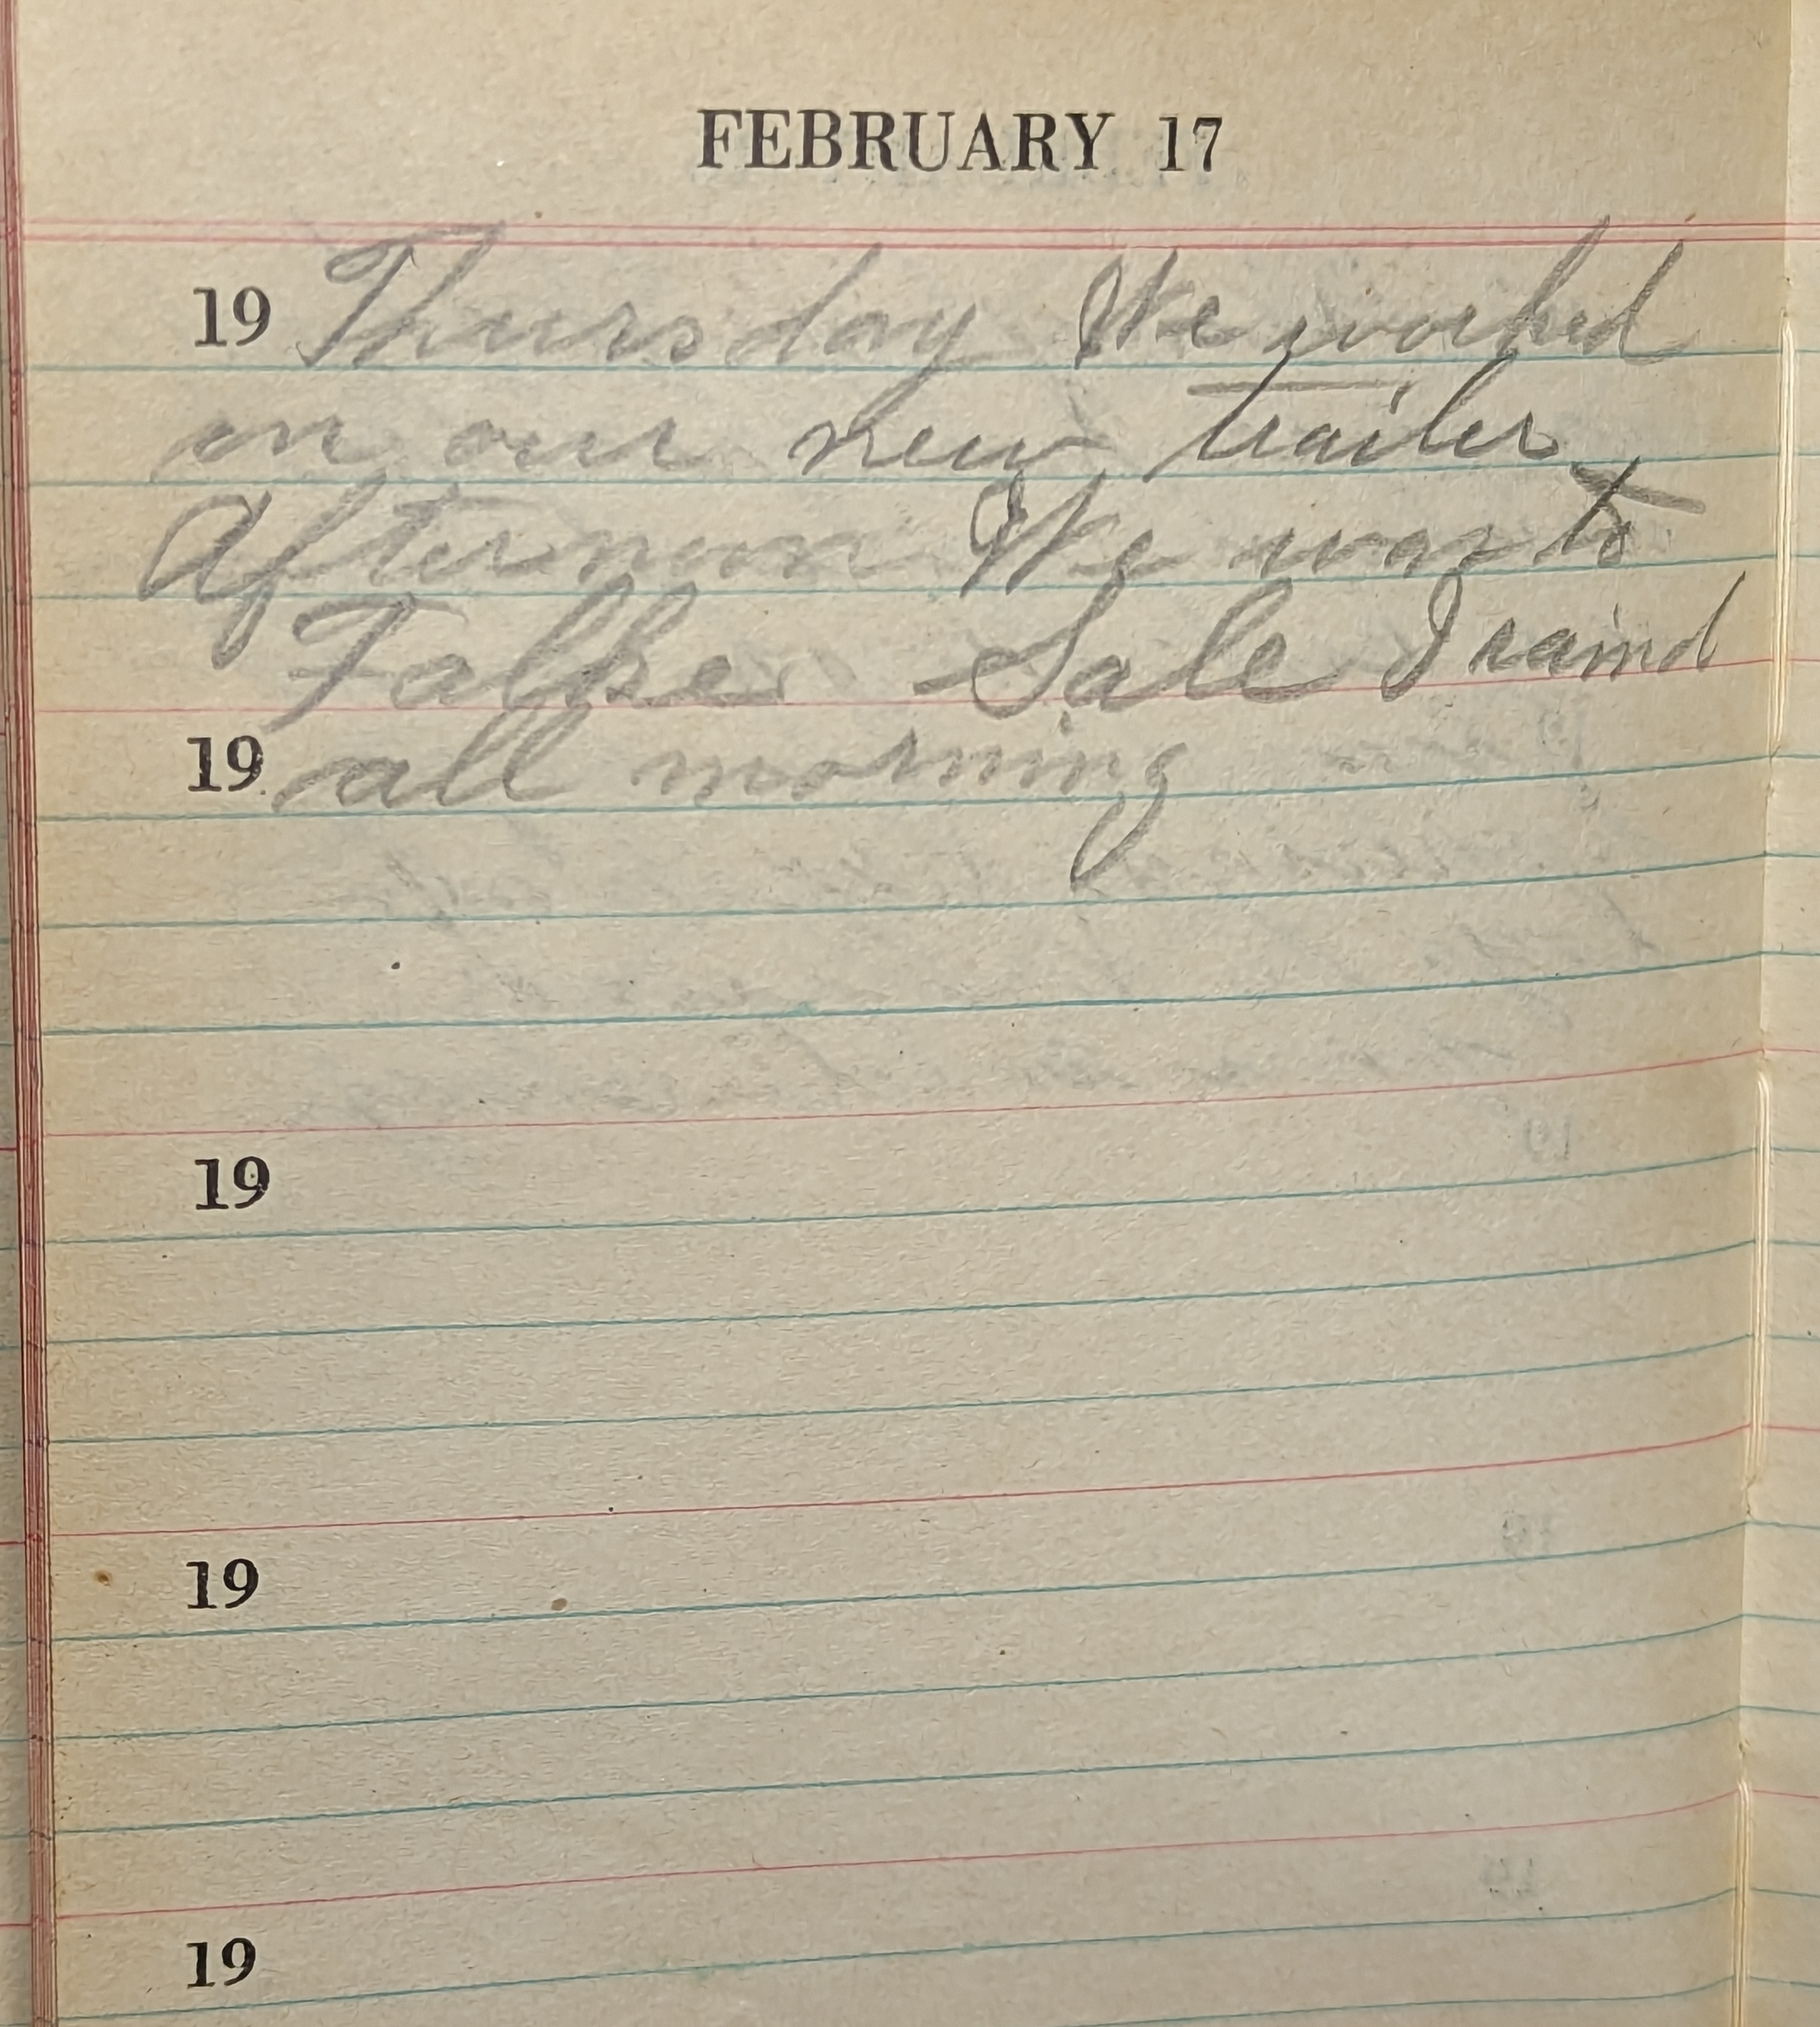 FEBRUARY 17
19 Thursday We worked
on our new trailer
Afternoon We was to
Falke Sale I raind
19 all morning
19
19
19